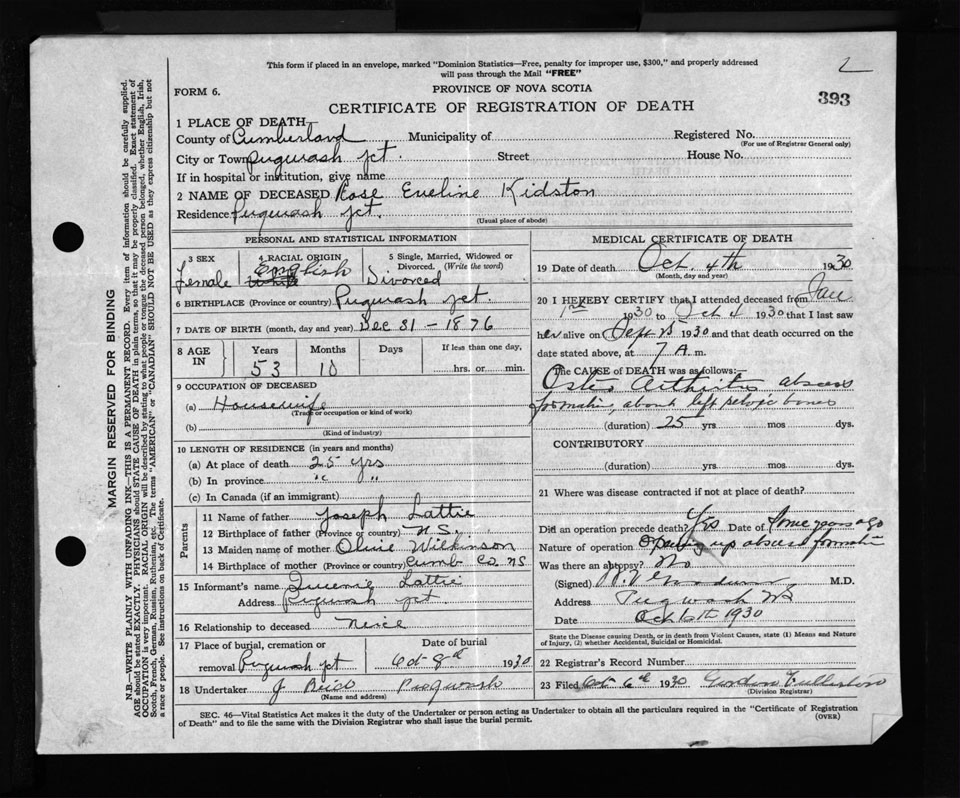 This form if placed in an envelope, marked "Dominion Statistics—Free, penalty for improper use, $300," and properly addressed
will pass through the Mail "FREE"
2
FORM 6.
PROVINCE OF NOVA SCOTIA
393
CERTIFICATE OF REGISTRATION OF DEATH
1 PLACE OF DEATH
County of Cumberland Municipality of Registered No.
(For use of Registrar General only)
City or Town Pugwash Jct. Street House No.
If in hospital or institution, give name
2 NAME OF DECEASED Rose Eveline Kidston
Residence Pugwash Jct.
(Usual place of abode)
PERSONAL AND STATISTICAL INFORMATION
3 SEX Female
4 RACIAL ORIGIN English
5 Single, Married, Widowed or Divorced. (Write the word) Divorced
6 BIRTHPLACE (Province or country) Pugwash Jct.
7 DATE OF BIRTH (month, day and year) Dec 31 – 1876
8 AGE IN Years 53 Months 10 Days If less than one day, hrs. or min.
9 OCCUPATION OF DECEASED
(a) Housewife
(Trade or occupation or kind of work)
(b)
(Kind of industry)
10 LENGTH OF RESIDENCE (in years and months)
(a) At place of death 25 yrs
(b) In province " "
(c) In Canada (if an immigrant)
Parents
11 Name of father Joseph Lattie
12 Birthplace of father (Province or country) N.S.
13 Maiden name of mother Olive Wilkinson
14 Birthplace of mother (Province or country) Cumb Co. NS
15 Informant's name Queenie Lattie
Address Pugwash Jct.
16 Relationship to deceased Neice
17 Place of burial, cremation or removal Pugwash Jct
Date of burial Oct 8th 1930
18 Undertaker J Pugwash
(Name and address)
MEDICAL CERTIFICATE OF DEATH
19 Date of death Oct. 4th 1930
(Month, day and year)
20 I HEREBY CERTIFY that I attended deceased from Jan
1st 1930 to Oct 4 1930 that I last saw
her alive on Sept 1930 and that death occurred on the
date stated above, at 7 A. m.
The CAUSE of DEATH was as follows:—
Osteo Arthritis abscess
formation, about left pelvic bones
(duration) 25 yrs mos dys.
CONTRIBUTORY
(duration) yrs mos dys.
21 Where was disease contracted if not at place of death?
Did an operation precede death? Yes Date of Some years ago
Nature of operation Opening up abscess formation
Was there an autopsy? No
(Signed) M.D.
Address Pugwash NS
Date Oct 1930
State the Disease causing Death, or in death from Violent Causes, state (1) Means and Nature
of Injury, (2) whether Accidental, Suicidal or Homicidal.
22 Registrar's Record Number
23 Filed Oct 6th 1930 Gordon
(Division Registrar)
SEC. 46—Vital Statistics Act makes it the duty of the Undertaker or person acting as Undertaker to obtain all the particulars required in the "Certificate of Registration
of Death" and to file the same with the Division Registrar who shall issue the burial permit.
(OVER)
MARGIN RESERVED FOR BINDING
N.B.—WRITE PLAINLY WITH UNFADING INK—THIS IS A PERMANENT RECORD. Every item of information should be carefully supplied.
AGE should be stated EXACTLY. PHYSICIANS should STATE CAUSE OF DEATH in plain terms, so that it may be properly classified. Exact statement of
OCCUPATION is very important. RACIAL ORIGIN will be described by stating to what people or tongue the deceased person belonged, whether English, Irish,
Scotch, French, German, Russian, Ruthenian, etc. The terms "AMERICAN" or "CANADIAN" SHOULD NOT BE USED as they express citizenship but not
a race or people. See instructions on back of Certificate.